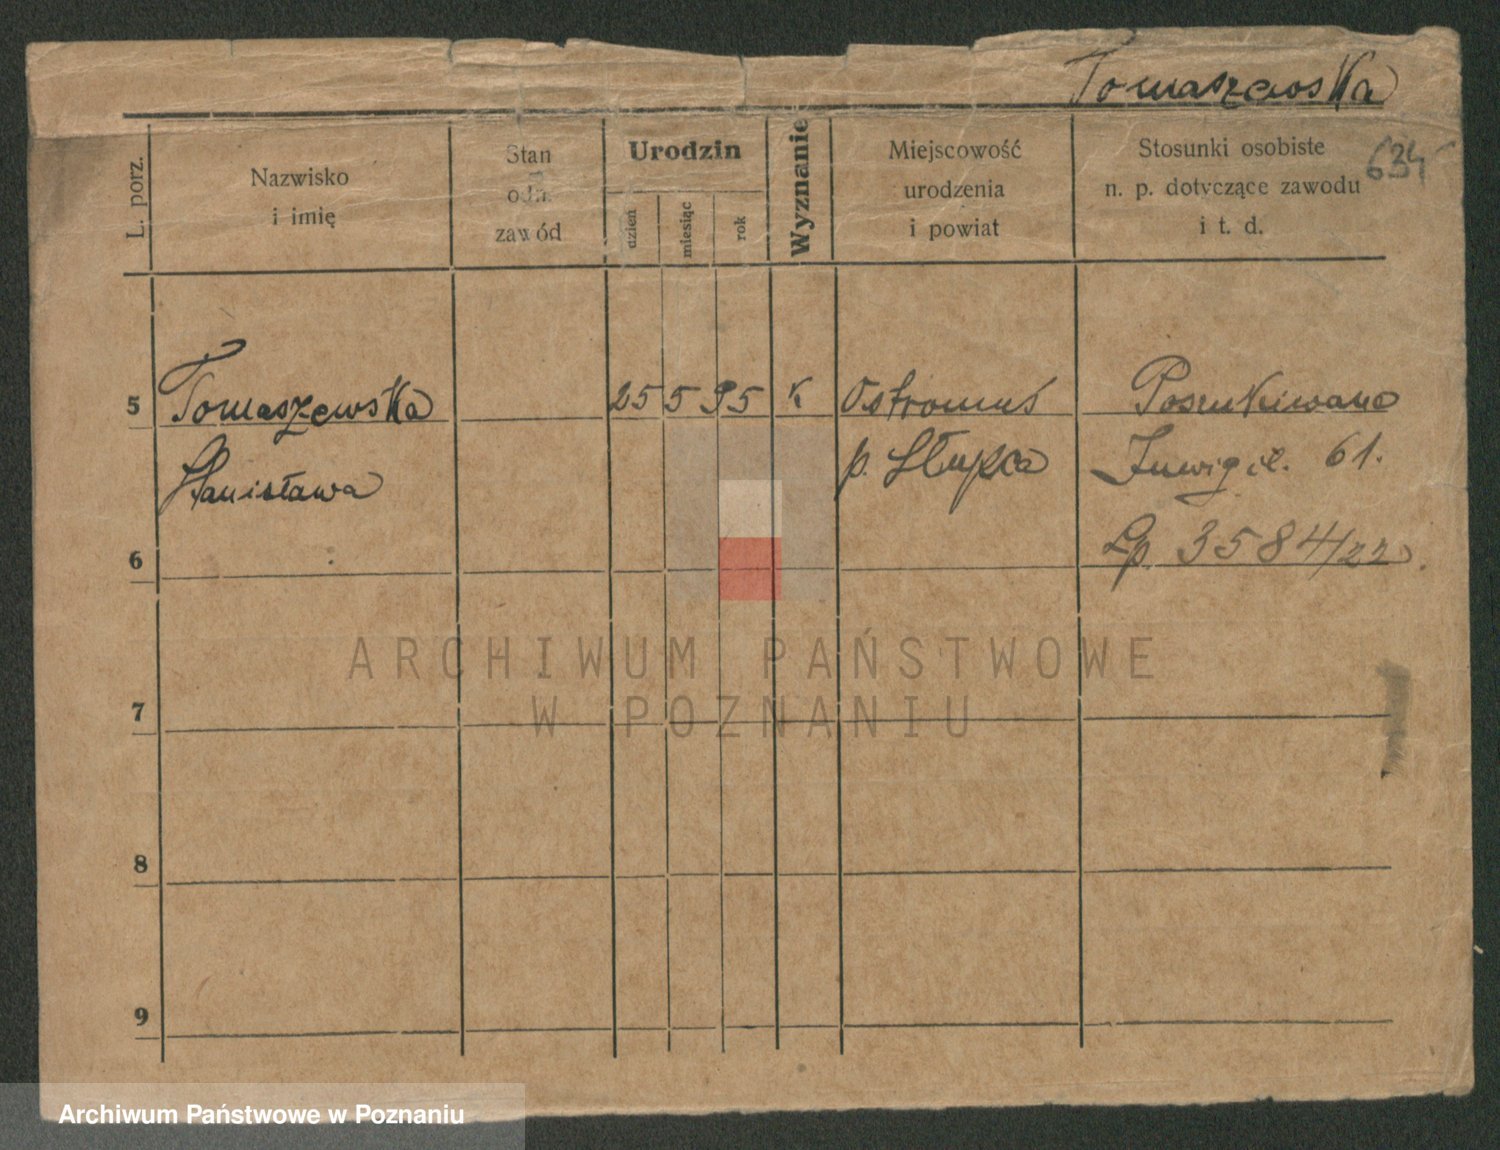 Tomaszewska
634
L. porz.
Nazwisko
i imię
Stan
odn.
zawód
Urodzin
dzień
miesiąc
rok
Wyznanie
Miejscowość
urodzenia
i powiat
Stosunki osobiste
n. p. dotyczące zawodu
i t. d.
5
Tomaszewska
Stanisława
25 5 95
K
p. Słupca
Poszukiwana
61.
Lp. 3584/22
6
7
8
9
ARCHIWUM PAŃSTWOWE
W POZNANIU
Archiwum Państwowe w Poznaniu